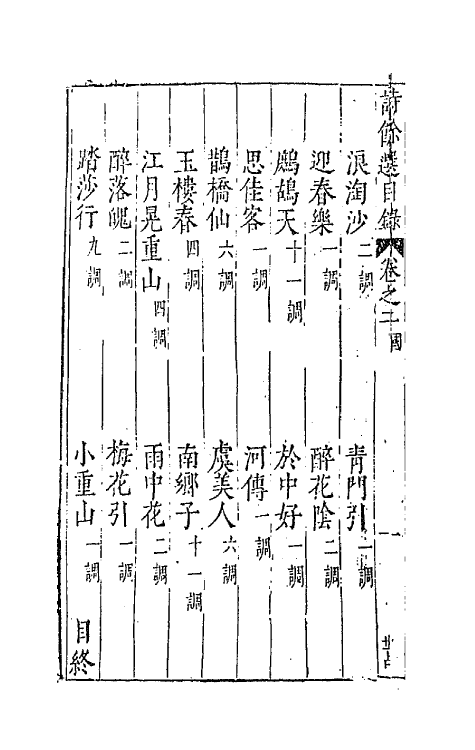 詩餘選目錄 卷之二 一
浪淘沙 二調 青門引 一調
迎春樂 一調 醉花陰 二調
鷓鴣天 十一調 於中好 一調
思佳客 一調 河傳 一調
鵲橋仙 六調 虞美人 六調
玉樓春 四調 南鄉子 十一調
江月晃重山 四調 雨中花 二調
醉落魄 二調 梅花引 一調
踏莎行 九調 小重山 一調 目終